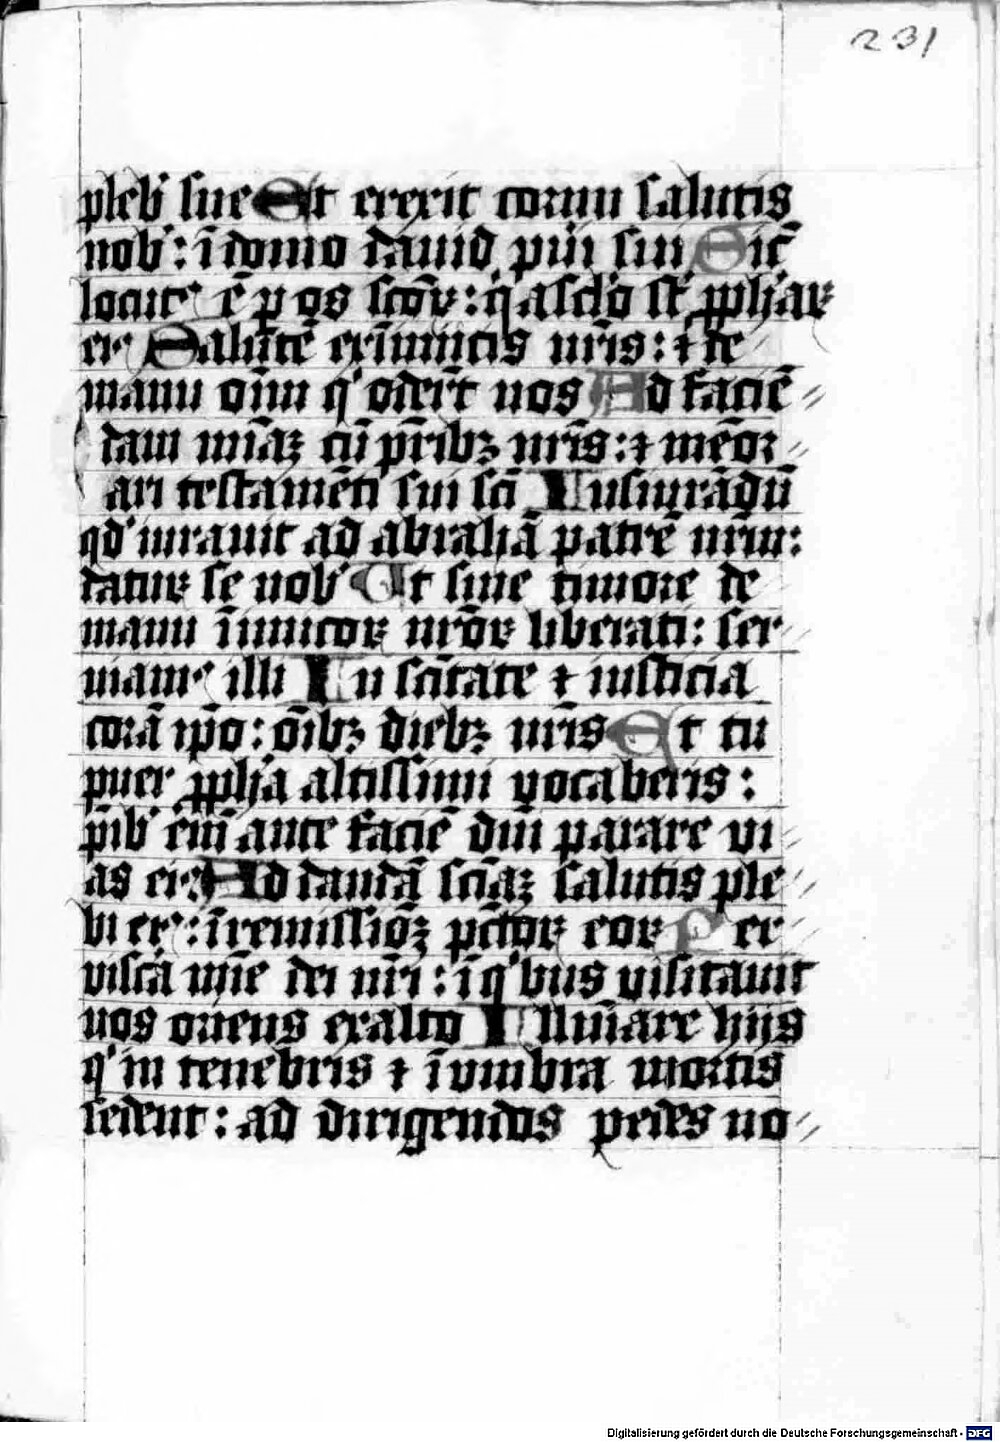 231
pleb' sue Et erexit cornu salutis
nob': ī domo dauid pu̅i sui Sic̅
locut' ē p os sc̅oꝝ: q' a sc̅lo s̅t ꝓph̅aꝝ
ei' Salutē ex īimicis nr̅is: ⁊ de
manu oi̅m q' oder̅t nos Ad faciē //
dam mi̅aꝫ cū pr̅ibꝫ nr̅is: ⁊ me̅or //
ari testamēti sui sc̅i Iusiurādū
qd' iurauit ad abrahā patrē nr̅m:
daturꝝ se nob' Ut sine timore de
manu īimicoꝝ nr̅oꝝ liberati: ser //
uiam' illi In sc̅itate ⁊ iusticia
corā ip̅o: oi̅bꝫ diebꝫ nr̅is Et tu
puer ꝓph̅a altissimi vocaberis:
p̅ib' ei̅m ante faciē dn̅i parare vi //
as ei' Ad dandā sci̅aꝫ salutis ple //
bi ei': ī remissioꝫ pc̅toꝝ eoꝝ Per //
viscā mi̅e dei nr̅i: ī q'bus visitauit
nos oriens exalto Illuīare hijs
q' in tenebris ⁊ ī vmbra mortis
sedent: ad dirigendos pedes no //
Digitalisierung gefördert durch die Deutsche Forschungsgemeinschaft - DFG